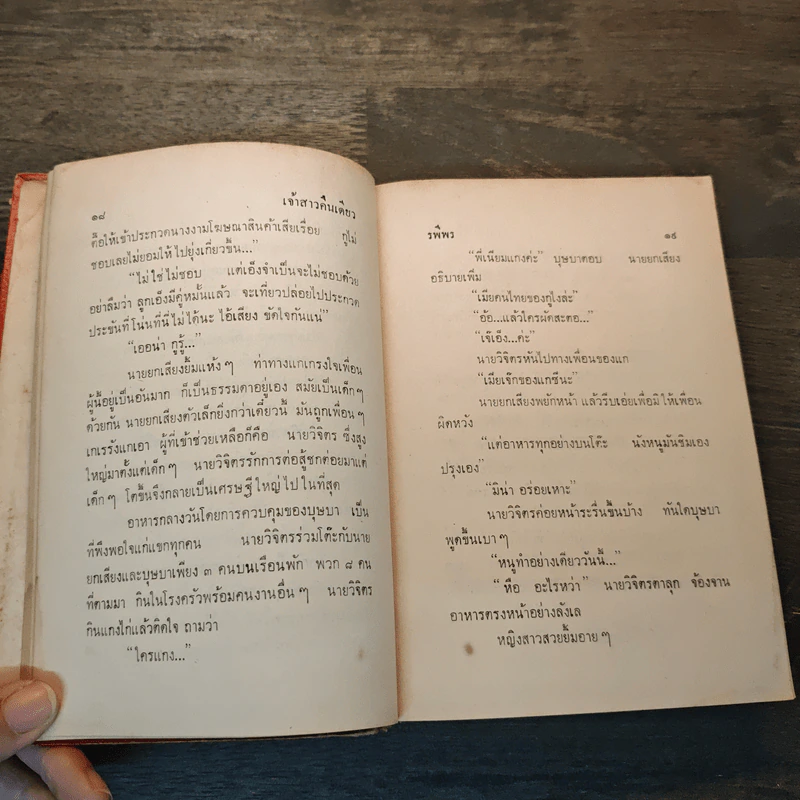 ๑๘
เจ้าสาวคืนเดียว
คือให้เข้าประกวดนางงามโฆษณาสินค้าเสียเรื่อย กูไม่
ชอบเลยไม่ยอมให้ไปยุ่งเกี่ยวขึ้น..."
"ไม่ใช่ไม่ชอบ แต่เอ็งจำเป็นจะไม่ชอบด้วย
อย่าลืมว่า ลูกเอ็งมีคู่หมั้นแล้ว จะเที่ยวปล่อยไปประกวด
ประชันที่โน่นที่นี่ไม่ได้นะ ไอ้เสียง ขัดใจกันแน่"
"เออน่า กูรู้..."
นายยกเสียงยิ้มแห้งๆ ท่าทางแกเกรงใจเพื่อน
ผู้นี้อยู่เป็นอันมาก ก็เป็นธรรมดาอยู่เอง สมัยเป็นเด็กๆ
ด้วยกัน นายยกเสียงตัวเล็กยิ่งกว่าเดี๋ยวนี้ มันถูกเพื่อนๆ
เกเรรังแกเอา ผู้ที่เข้าช่วยเหลือก็คือ นายวิจิตร ซึ่งสูง
ใหญ่มาตั้งแต่เด็กๆ นายวิจิตรรักการต่อสู้ชกต่อยมาแต่
เด็กๆ โตขึ้นจึงกลายเป็นเศรษฐีใหญ่ไปในที่สุด
อาหารกลางวันโดยการควบคุมของบุษบา เป็น
ที่พึงพอใจแก่แขกทุกคน นายวิจิตรร่วมโต๊ะกับนาย
ยกเสียงและบุษบาเพียง ๓ คนบนเรือนพัก พวก ๘ คน
ที่ตามมา กินในโรงครัวพร้อมคนงานอื่นๆ นายวิจิตร
กินแกงไก่แล้วติดใจ ถามว่า
"ใครแกง..."
รพีพร
๑๙
"พี่เนียมแกงค่ะ" บุษบาตอบ นายยกเสียง
อธิบายเพิ่ม
"เมียคนไทยของกูไงล่ะ"
"อ้อ...แล้วใครผัดสะตอ..."
"เจ๊เอ็ง...ค่ะ"
นายวิจิตรหันไปทางเพื่อนของแก
"เมียเจ๊กของแกซีนะ"
นายยกเสียงพยักหน้า แล้วรีบเอ่ยเพื่อมิให้เพื่อน
ผิดหวัง
"แต่อาหารทุกอย่างบนโต๊ะ นังหนูมันชิมเอง
ปรุงเอง"
"มิน่า อร่อยเหาะ"
นายวิจิตรค่อยหน้าระรื่นขึ้นบ้าง ทันใดบุษบา
พูดขึ้นเบาๆ
"หนูทำอย่างเดียววันนี้..."
"หือ อะไรหว่า" นายวิจิตรตาลุก จ้องจาน
อาหารตรงหน้าอย่างลังเล
หญิงสาวสวยยิ้มอายๆ